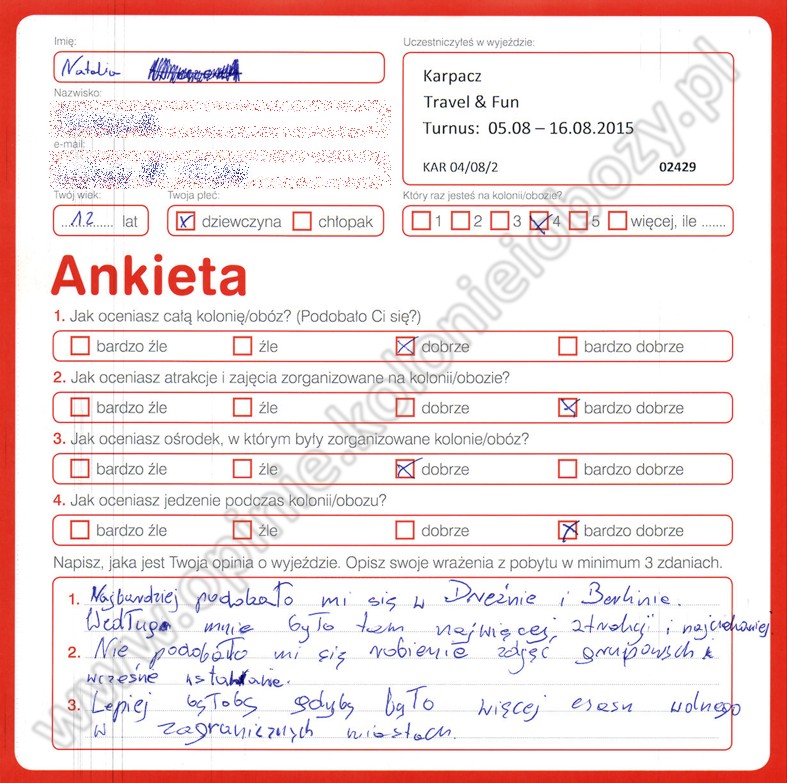 Imię:
Natalia
Uczestniczyłeś w wyjeździe:
Karpacz
Travel & Fun
Turnus: 05.08 – 16.08.2015
KAR 04/08/2 02429
Nazwisko:
e-mail:
Twój wiek: Twoja płeć: Który raz jesteś na kolonii/obozie?
12 lat dziewczyna chłopak 1 2 3 4 5 więcej, ile .......
Ankieta
1. Jak oceniasz całą kolonię/obóz? (Podobało Ci się?)
bardzo źle źle dobrze bardzo dobrze
2. Jak oceniasz atrakcje i zajęcia zorganizowane na kolonii/obozie?
bardzo źle źle dobrze bardzo dobrze
3. Jak oceniasz ośrodek, w którym były zorganizowane kolonie/obóz?
bardzo źle źle dobrze bardzo dobrze
4. Jak oceniasz jedzenie podczas kolonii/obozu?
bardzo źle źle dobrze bardzo dobrze
Napisz, jaka jest Twoja opinia o wyjeździe. Opisz swoje wrażenia z pobytu w minimum 3 zdaniach.
1. Najbardziej podobało mi się w Dreźnie i Berlinie.
Według mnie było tam najwięcej atrakcji i najciekawiej
2. Nie podobało mi się robienie zdjęć grupowych i
wczesne wstawanie.
3. Lepiej byłoby gdyby było więcej czasu wolnego
w zagranicznych miastach.
www.opinie.kolonieiobozy.pl